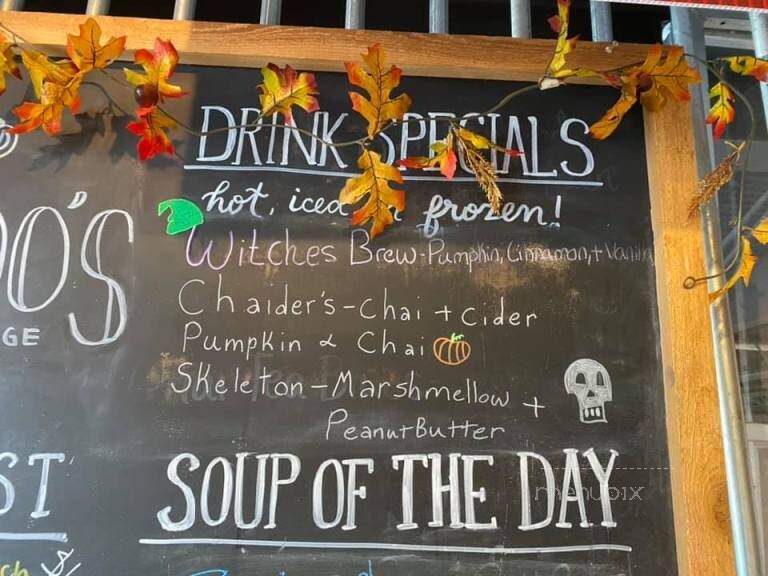 DRINK SPECIALS
hot, iced frozen!
Witches Brew-Pumpkin, Cinnamon, + Vanilla
Chaider's-Chai + Cider
Pumpkin & Chai
Skeleton-Marshmellow +
PeanutButter
OO'S
GE
ST
SOUP OF THE DAY
menupix